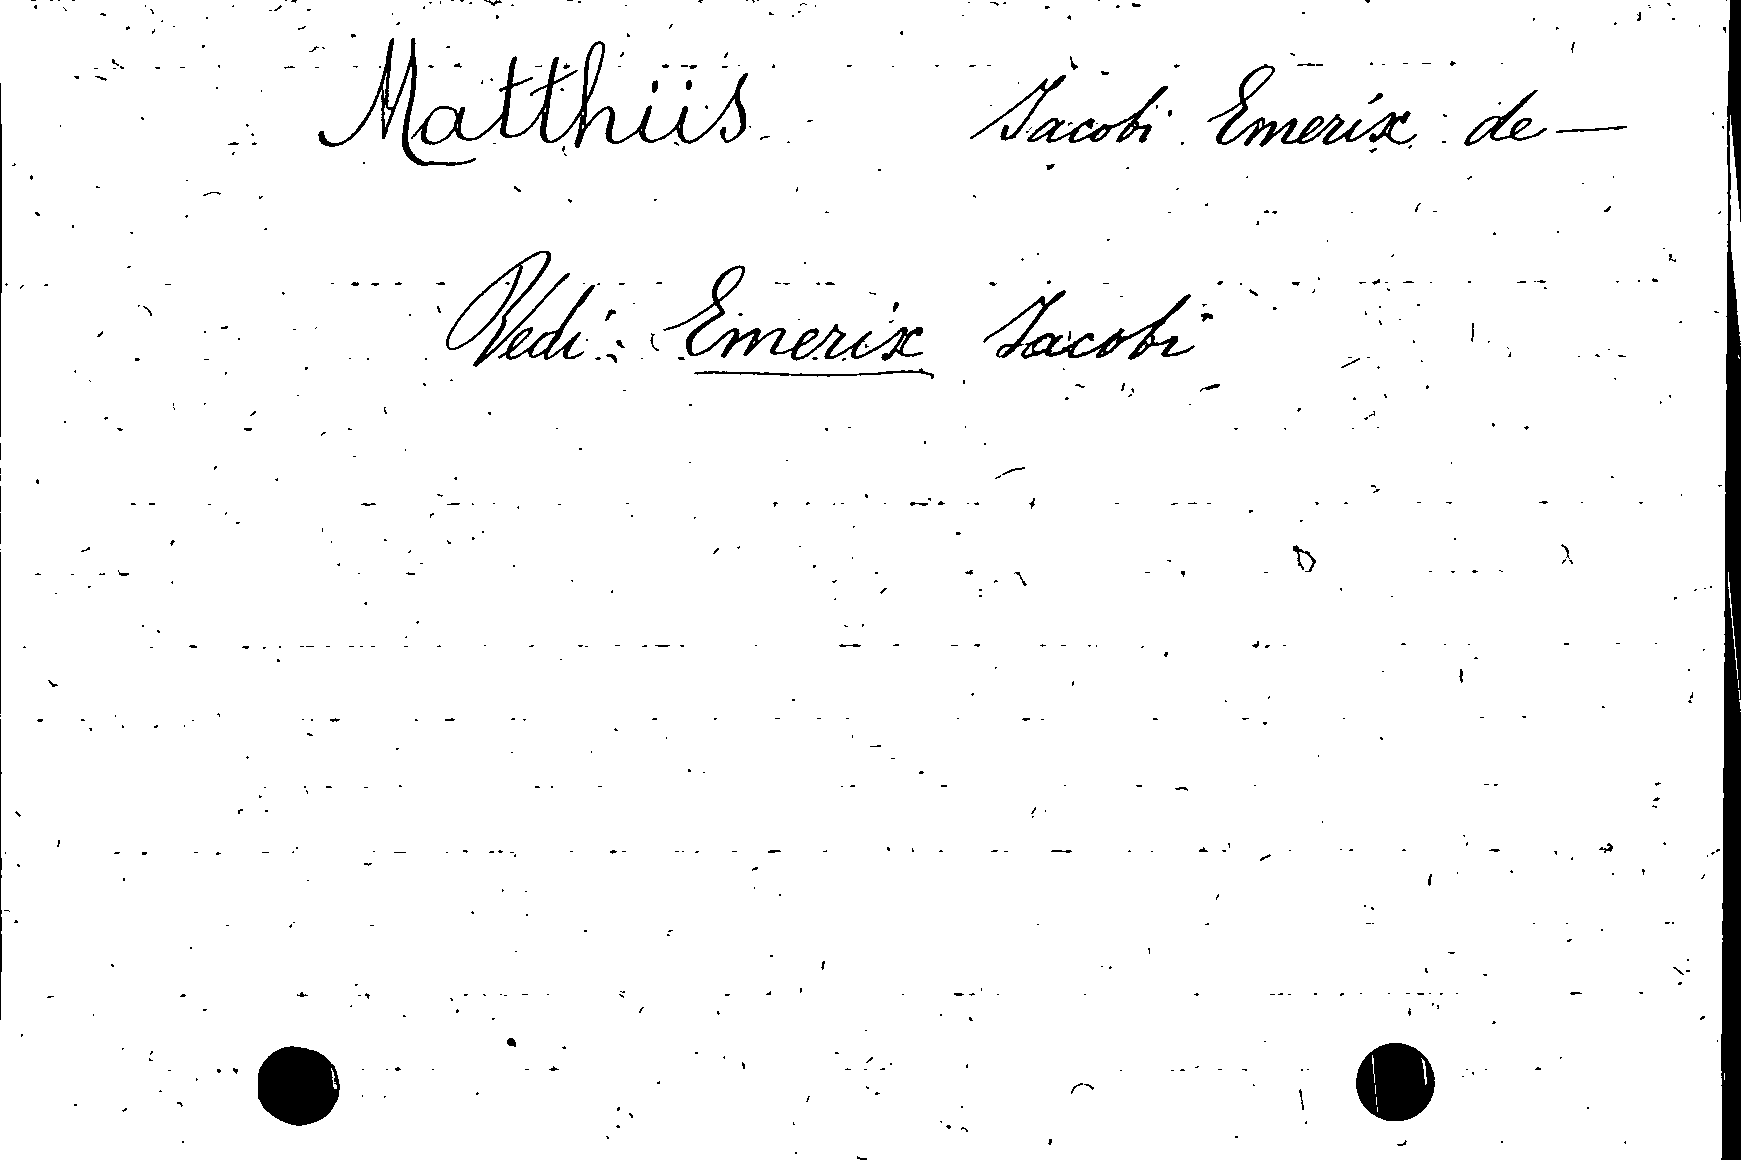 Matthiis Jacobi Emerix de —
Vedi: Emerix Jacobi